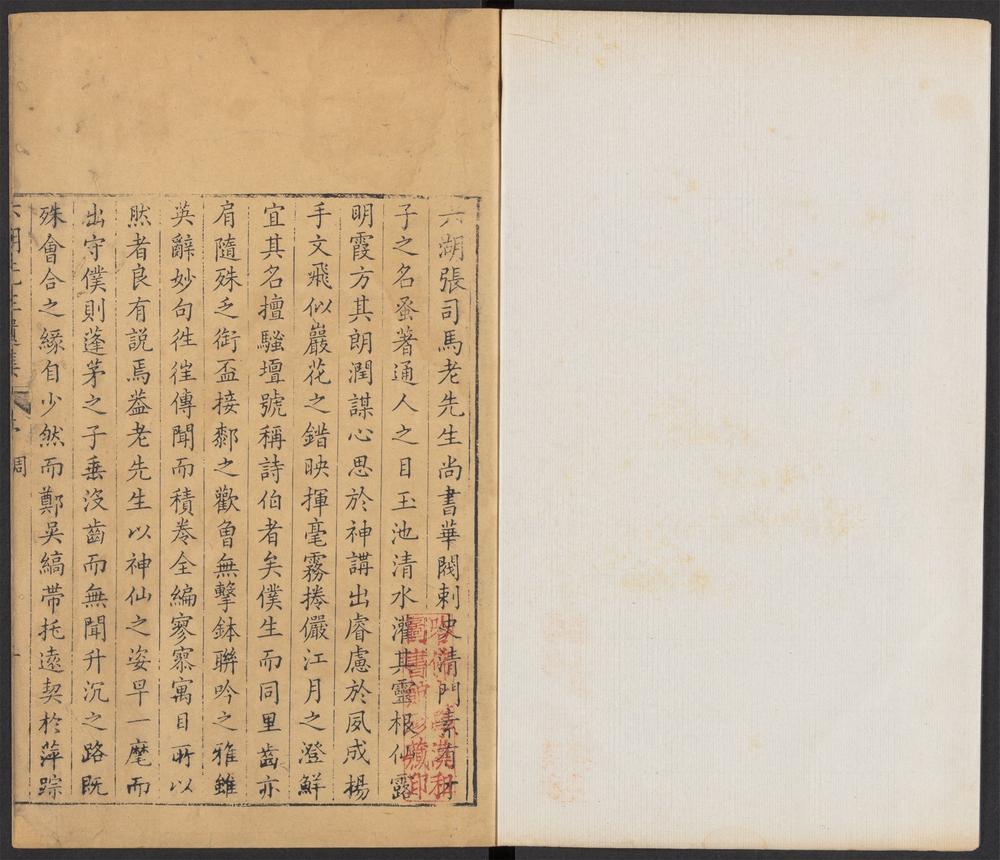 六湖張司馬老先生尚書華閥刺史清門素有才
子之名蚤著通人之目玉池清水灌其靈根仙露
明霞方其朗潤謀心思於神講出睿慮於夙成楊
手文飛似巖花之錯映揮毫霧捲儼江月之澄鮮
宜其名擅騷壇號稱詩伯者矣僕生而同里齒亦
肩隨殊乏銜盃接鄰之歡曾無擊鉢聯吟之雅雖
英辭妙句徃徃傳聞而積卷全編寥寥寓目所以
然者良有說焉葢老先生以神仙之姿早一麾而
出守僕則蓬茅之子垂沒齒而無聞升沉之路既
殊會合之緣自少然而鄭吳縞帶托遠契於萍踪
六湖先生遺集 周 一